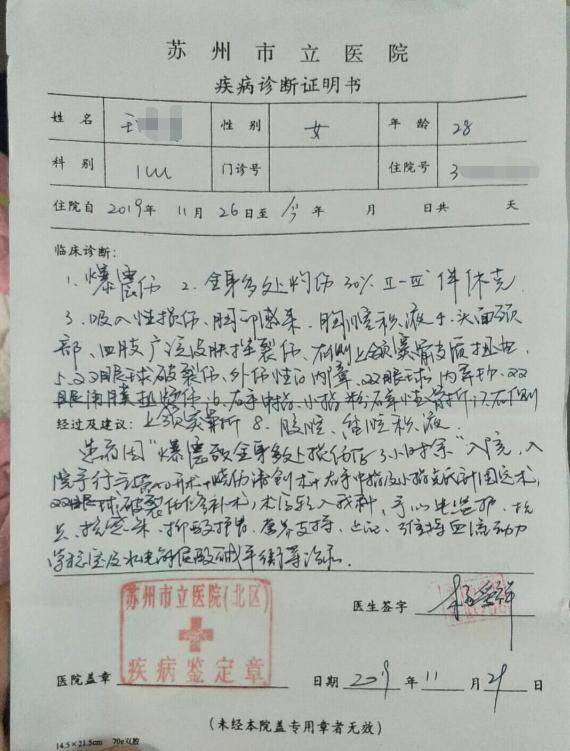 苏州市立医院
疾病诊断证明书
姓名 王 性别 女 年龄 28
科别 ICU 门诊号 住院号 3
住院自 2019年 11月 26日至 今年 月 日共 天
临床诊断:
1.爆震伤 2.全身多处灼伤30% Ⅱ-Ⅲ° 伴休克
3.吸入性损伤、肺部感染、胸腔积液 4.头面颈
部、四肢广泛皮肤挫裂伤、右侧上颌窦骨皮质扭曲
5.双眼球破裂伤、外伤性白内障、双眼球内异物、双
眼角膜 伤 6.右手中指、小指粉碎性骨折 7.右侧
经过及建议: 上颌窦骨折 8.腹腔、盆腔积液.
患者因“爆震致全身多处损伤后3小时余”入院,入
院予行 术+烧伤清创术+右手中指及小指 术,
双眼球破裂伤修补术,术后转入我科,予心电监护、抗
炎、抗感染、抑酸护胃、营养支持、止 、维持血流动力
学稳定及水电解质酸碱平衡等治疗.
苏州市立医院(北区)
疾病鉴定章
医生签字
医院盖章 日期 2019年 11月 29日
(未经本院盖专用章者无效)
14.5×21.5cm 70g双胶